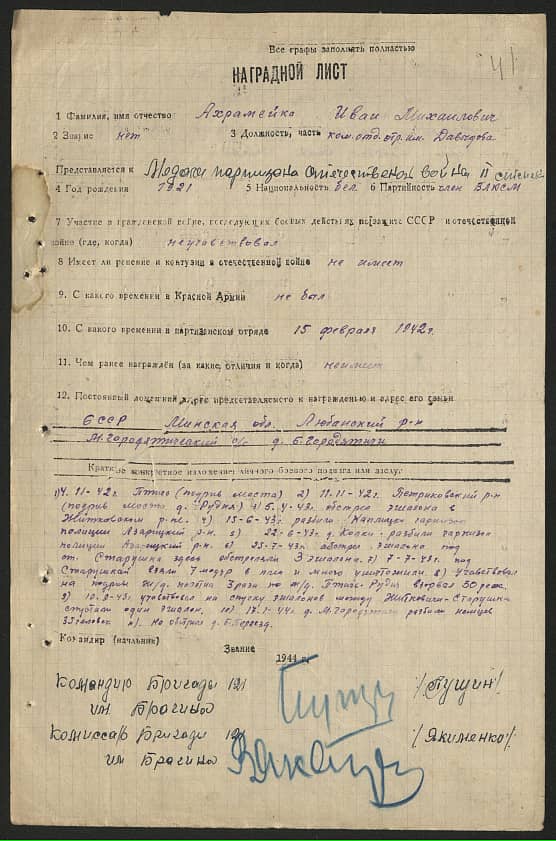 Все графы заполнять полностью
41
НАГРАДНОЙ ЛИСТ
1 Фамилия, имя отчество Ахрамейко Иван Михайлович
2 Звание нет 3 Должность, часть ком.отд. отр. им. Давыдова
Представляется к Медали партизана отечественой война II степени
4 Год рождения 1921 5 Национальность бел. 6 Партийность член ВЛКСМ
7 Участие в гражданской войне, последующих боевых действиях по защите СССР и отечественной
войне (где, когда) неучаствовал
8 Имеет ли ранение и контузии в отечественной войне не имеет
9. С какого времени в Красной Армии не был
10. С какого времени в партизанском отряде 15 февраля 1942г.
11. Чем ранее награждён (за какие отличия и когда) неимеет
12. Постоянный домашний адрес представляемого к награждению и адрес его семьи
БССР Минская обл. Любанский р-н
М.Городятический с/с д. Б.Городятичи
Краткое конкретное изложение личного боевого подвига или заслуг
1) 4.11-42г. Птичь (подрыв моста) 2) 11.11-42г. Петриковский р-н
(подрыв моста д. Рудня) 3) 5.4-43г. обстрел эшалона в
Житковском р-не. 4) 15-6-43г. разбили гарнизон
полиции Азарицкий р-н. 5) 22-6-43г. разбили гарнизон
полиции р-н. 6) 25-7-43г. обстрел эшалона под
ст. Старушки здесь обстреляли 3 эшалона. 7) 7-7-43г. под
Старушкай взяли в плен и много уничтожили 8) Учавствовал
на подрыв ж/д. полотна 3 раза по ж/д. Птичь-Рудня взорвал 50 рельс.
9) 10.9-43г учавствовал на спуску эшалонов между Житковичи-Старушки
спустили один эшалон. 10) 17.1-44г. д. М.Городятичи разбили немцев
Командир (начальник)
Звание
1944 г.
Командир Бригады 121
им. Брагина /Пущин/
Комиссар Бригады 121 /Якименко/
им Брагина